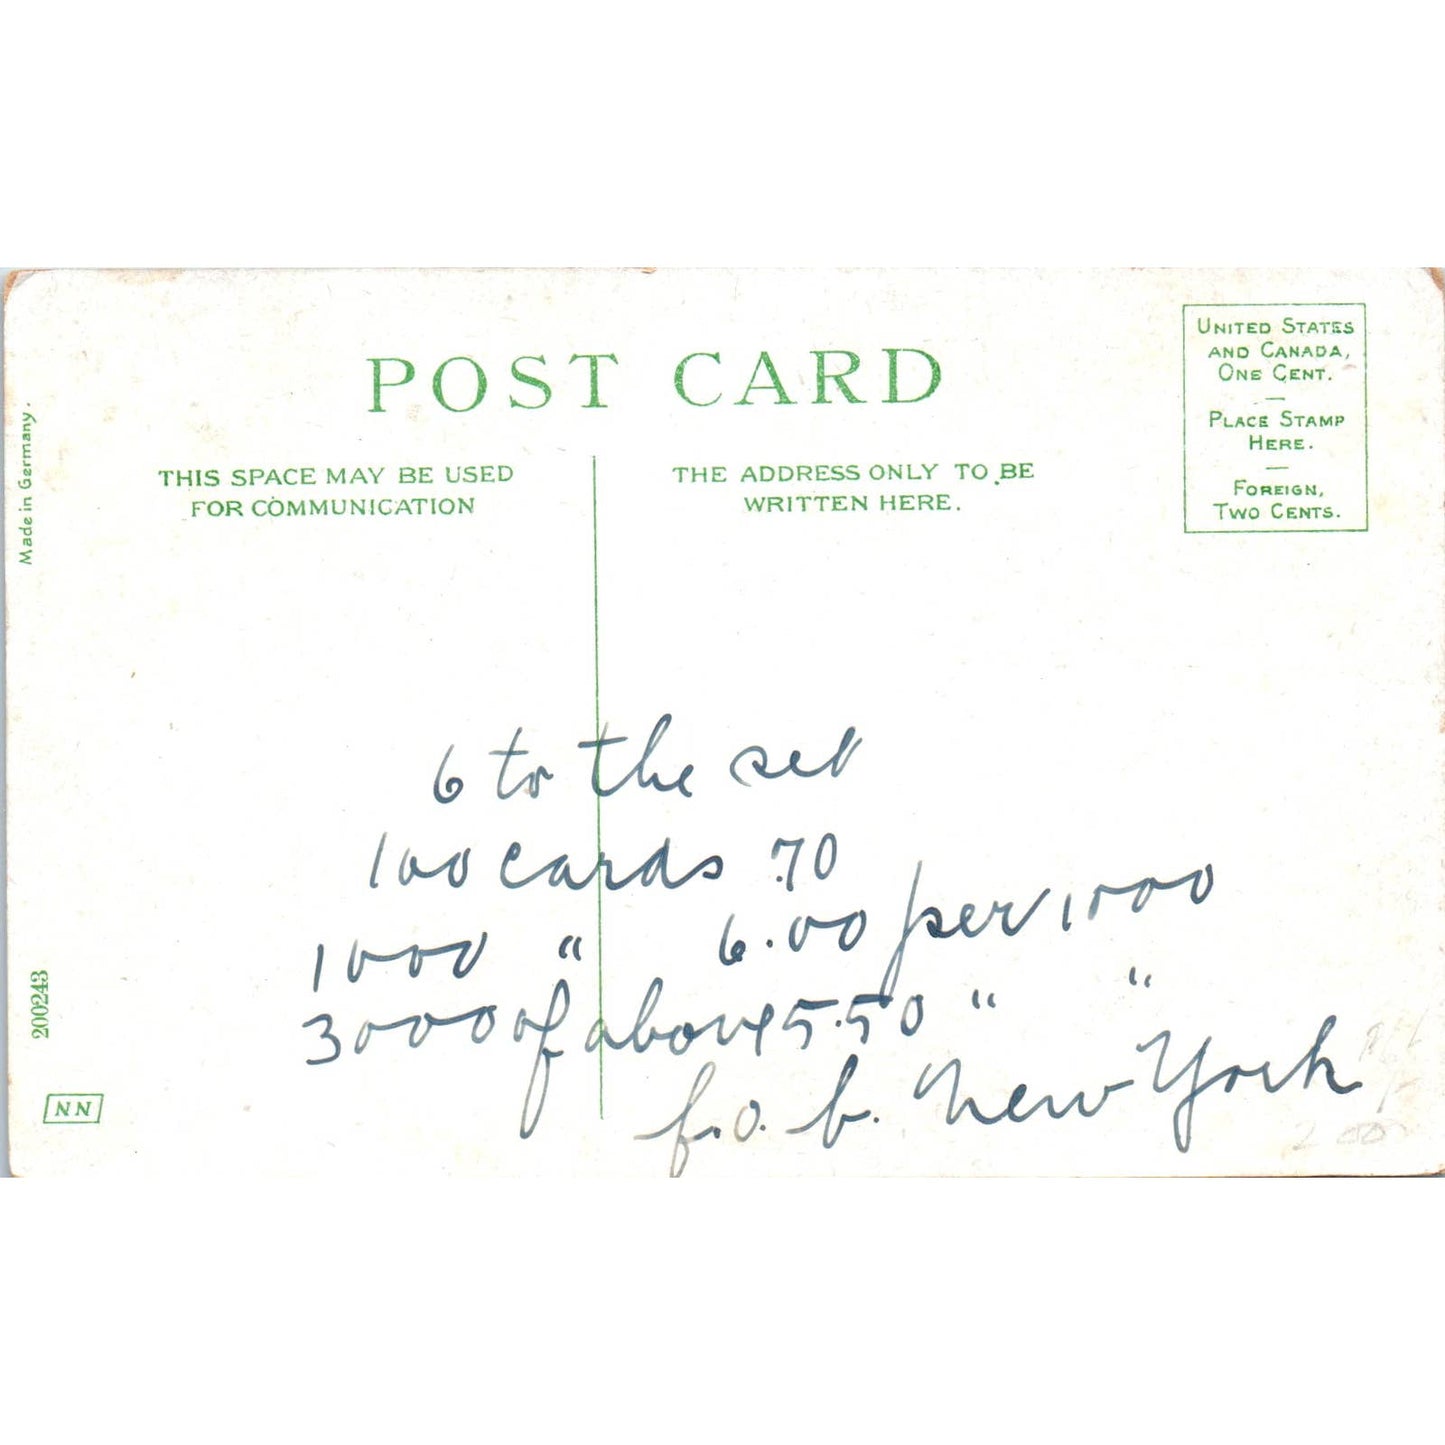 POST CARD
THIS SPACE MAY BE USED
FOR COMMUNICATION
THE ADDRESS ONLY TO BE
WRITTEN HERE.
UNITED STATES
AND CANADA,
ONE CENT.
PLACE STAMP
HERE.
FOREIGN,
TWO CENTS.
Made in Germany.
6 to the set
100 cards .70
1000 " 6.00 per 1000
3000 of above 5.50 " "
f.o.b. New York
200243
NN